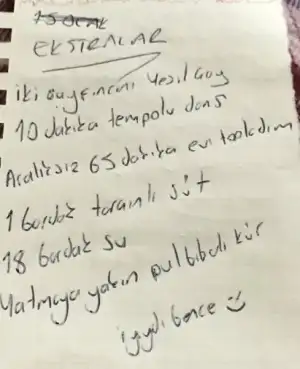 15 OCAK
EKSTRALAR
iki aug fincanı yeşil çay
10 dakika tempolu dans
Aralıksız 65 dakika ev topladım
1 bardak tarçınlı süt
18 bardak su
Yatmaya yakın pul biberli kür
iyiydi bence